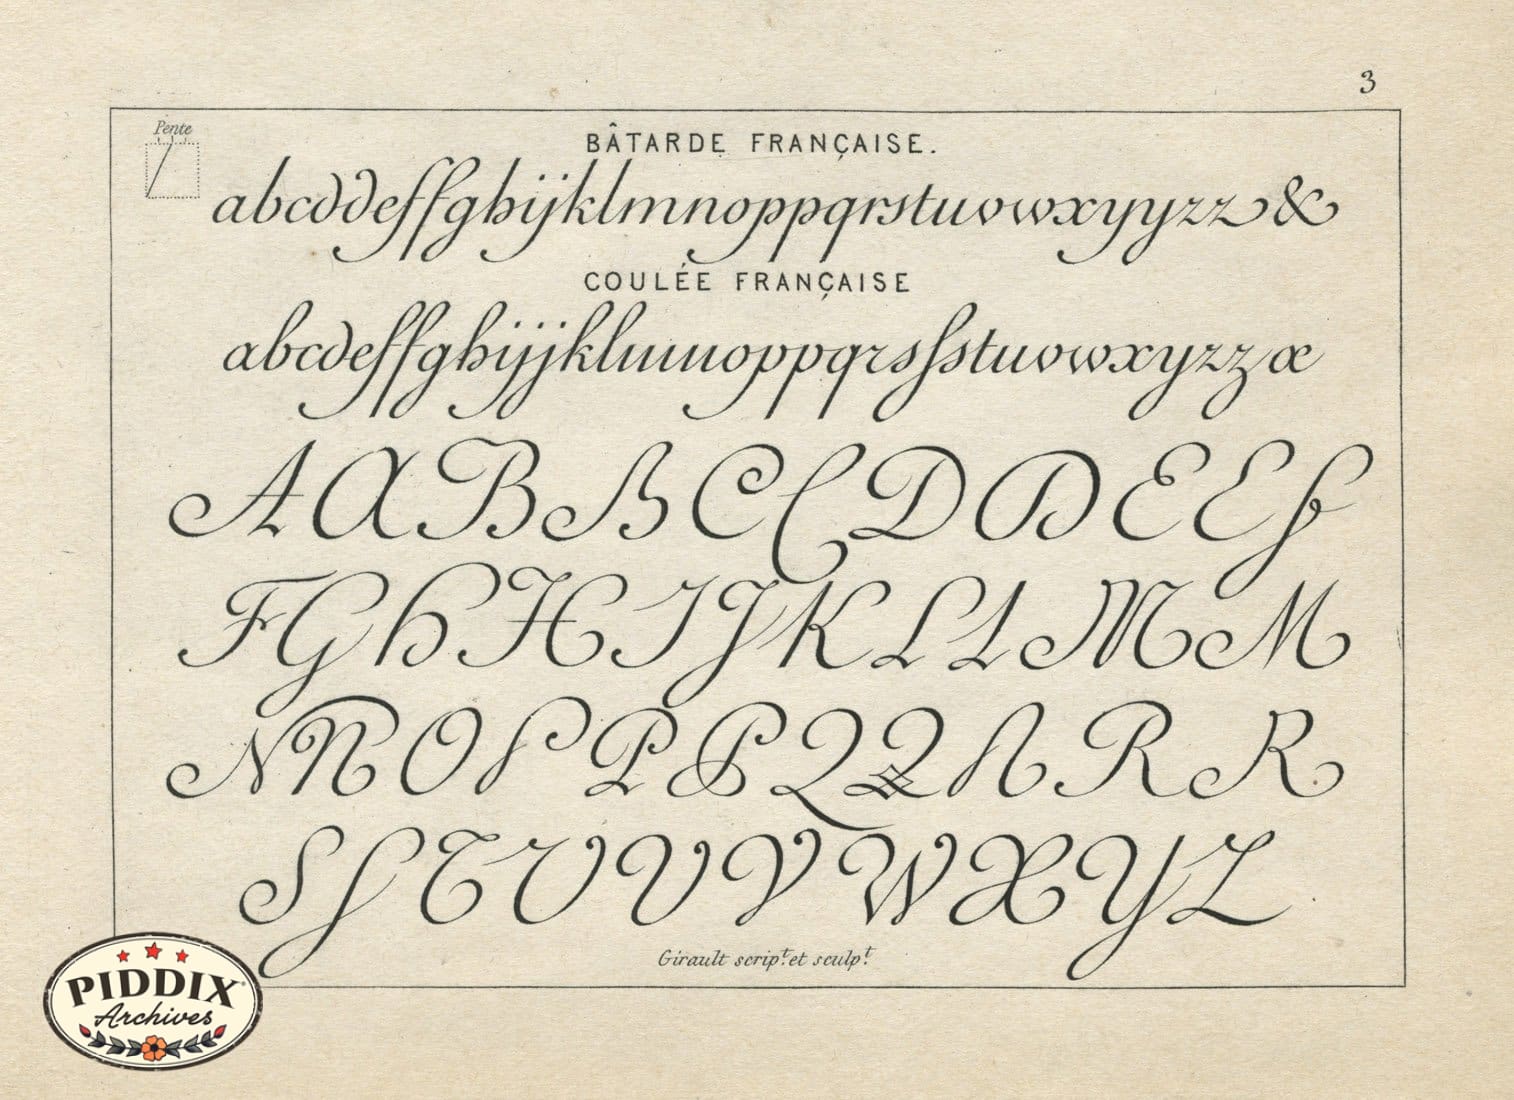 3
Pente
BÂTARDE FRANÇAISE.
abcddeffghijklmnoppqrstuvwxyyzz&
COULÉE FRANÇAISE
abcdeffghijjklmnoppqrsſstuvwxyzzæ
AABBCCDDEEF
FGHHIJKLLMM
NNOPPPQQRRR
SSTUVVWXYZ
Girault scripᵗ. et sculpᵗ.
PIDDIX
Archives